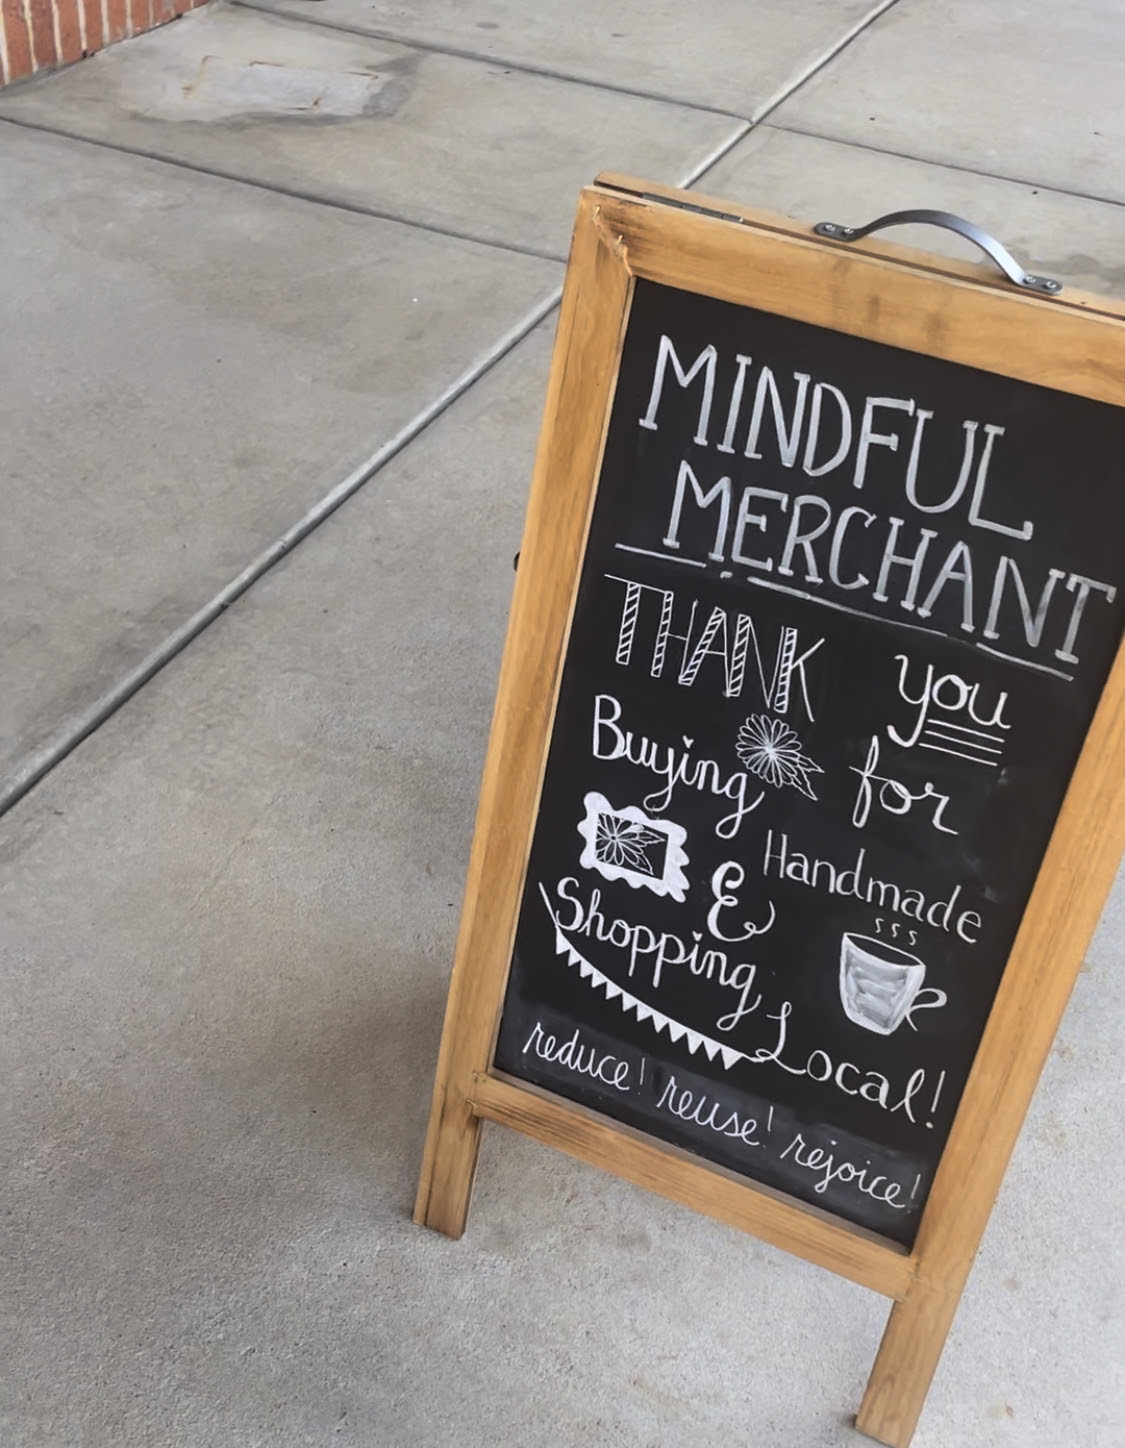 MINDFUL
MERCHANT
THANK you
Buying for
Handmade
&
Shopping
Local!
reduce! reuse! rejoice!